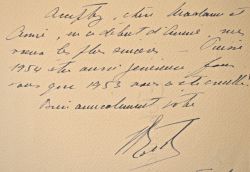 Acceptez, chère Madame et
Amie, en ce début d'année, mes
vœux les plus sincères — Puisse
1954 être aussi généreuse pour
vous que 1953 nous a été cruelle.
Bien amicalement votre